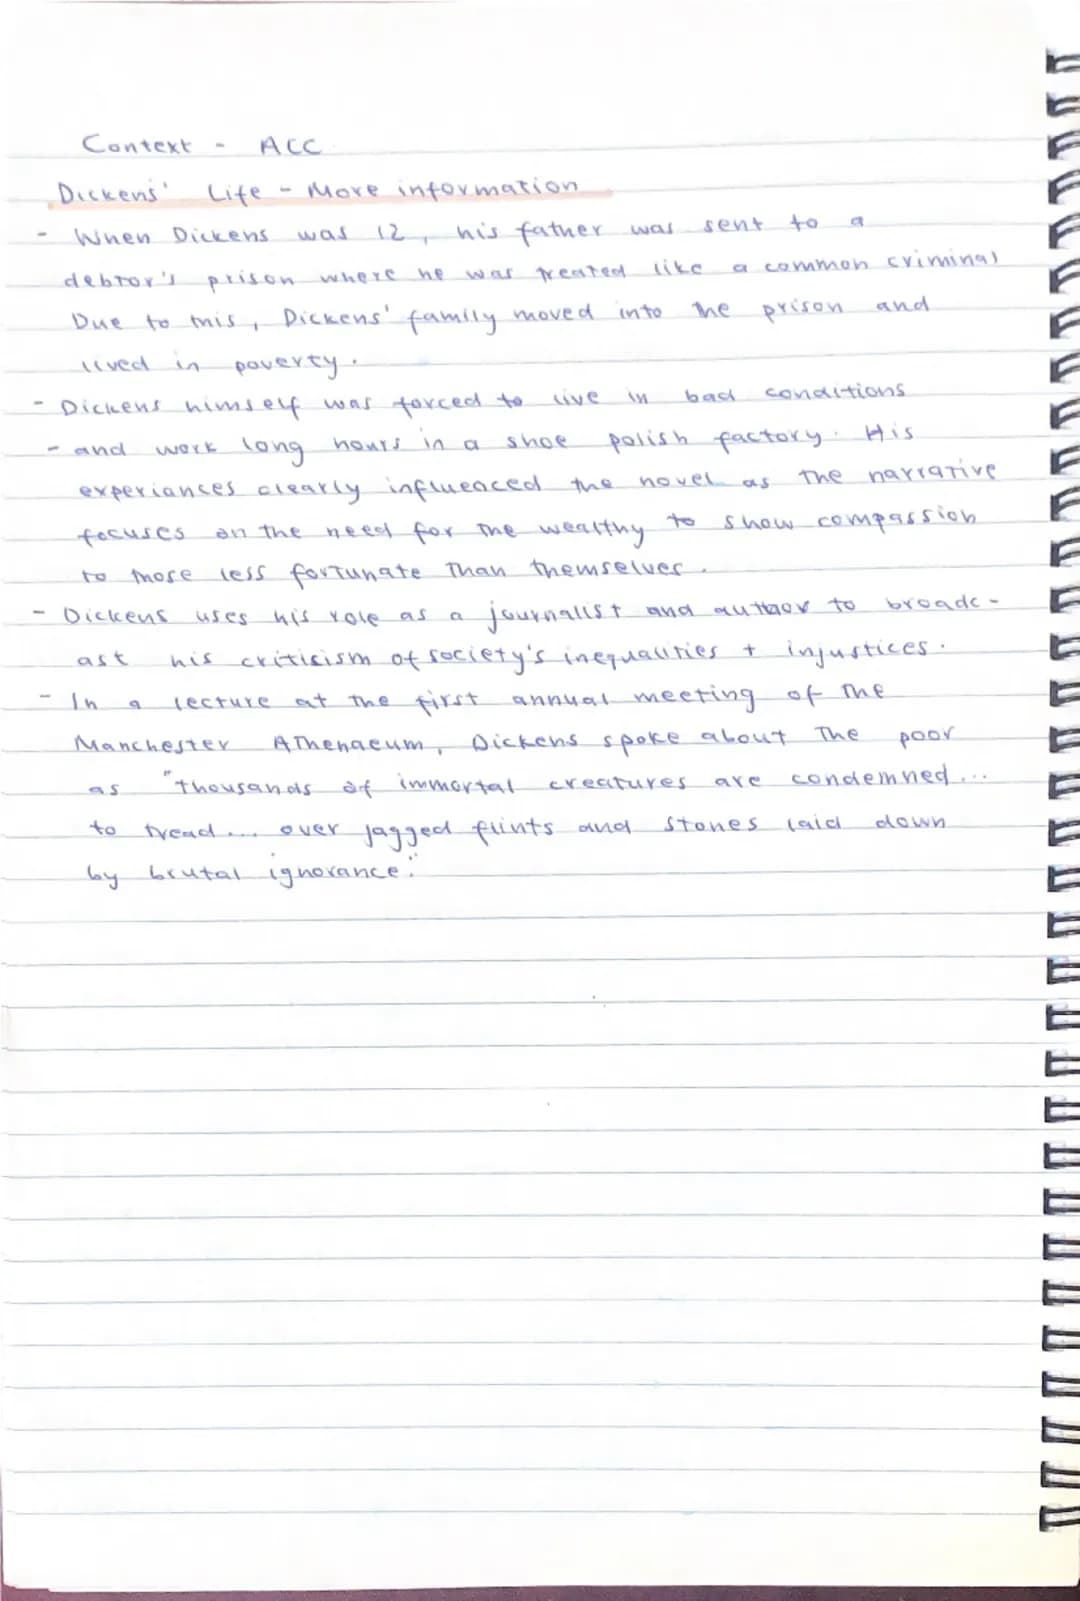 Context - ACC
Dickens' Life - More information
- When Dickens was 12, his father was sent to a
debtor's prison where he was treated like a common criminal
Due to this, Dickens' family moved into the prison and
lived in poverty.
- Dickens himself was forced to live in bad conditions
- and work long hours in a shoe polish factory. His
experiances clearly influenced the novel as the narrative
focuses on the need for the wealthy to show compassion
to those less fortunate than themselves.
- Dickens uses his role as a journalist and author to broadc-
ast his criticism of society's inequalities + injustices.
- In a lecture at the first annual meeting of the
Manchester Athenaeum, Dickens spoke about the poor
as "thousands of immortal creatures are condemned...
to tread... over jagged flints and stones laid down
by brutal ignorance."